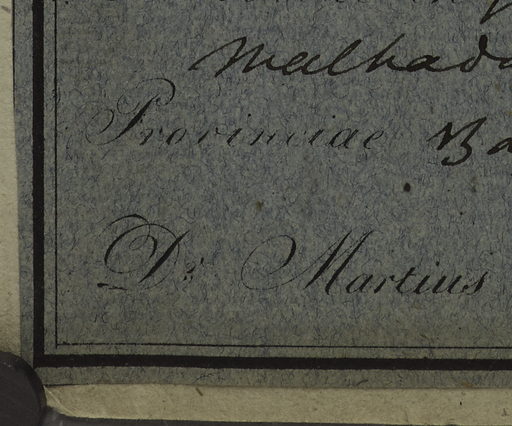 Malhada
Provinciae Ba
Dr. Martius